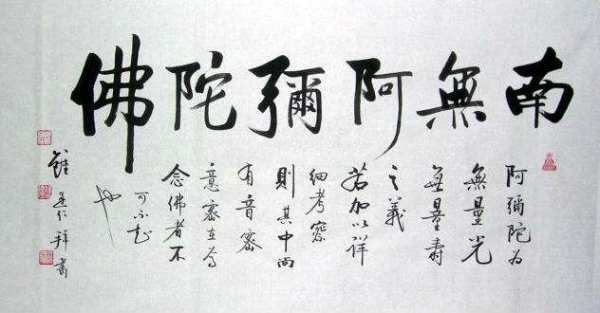 南無阿彌陀佛
阿彌陀为
無量光
無量壽
之義
若加以詳
细考察
則其中尚
有音密
意密在焉
念佛者不
可不知
也
仁拜書